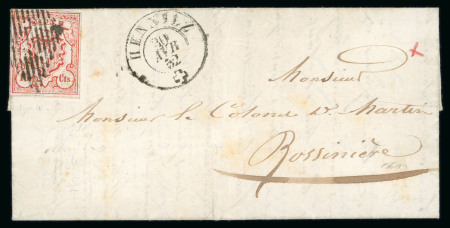 Cts
HENNIEZ
30
AVR
52
Monsieur
Monsieur le Colonel Dr Martin
Rossinière